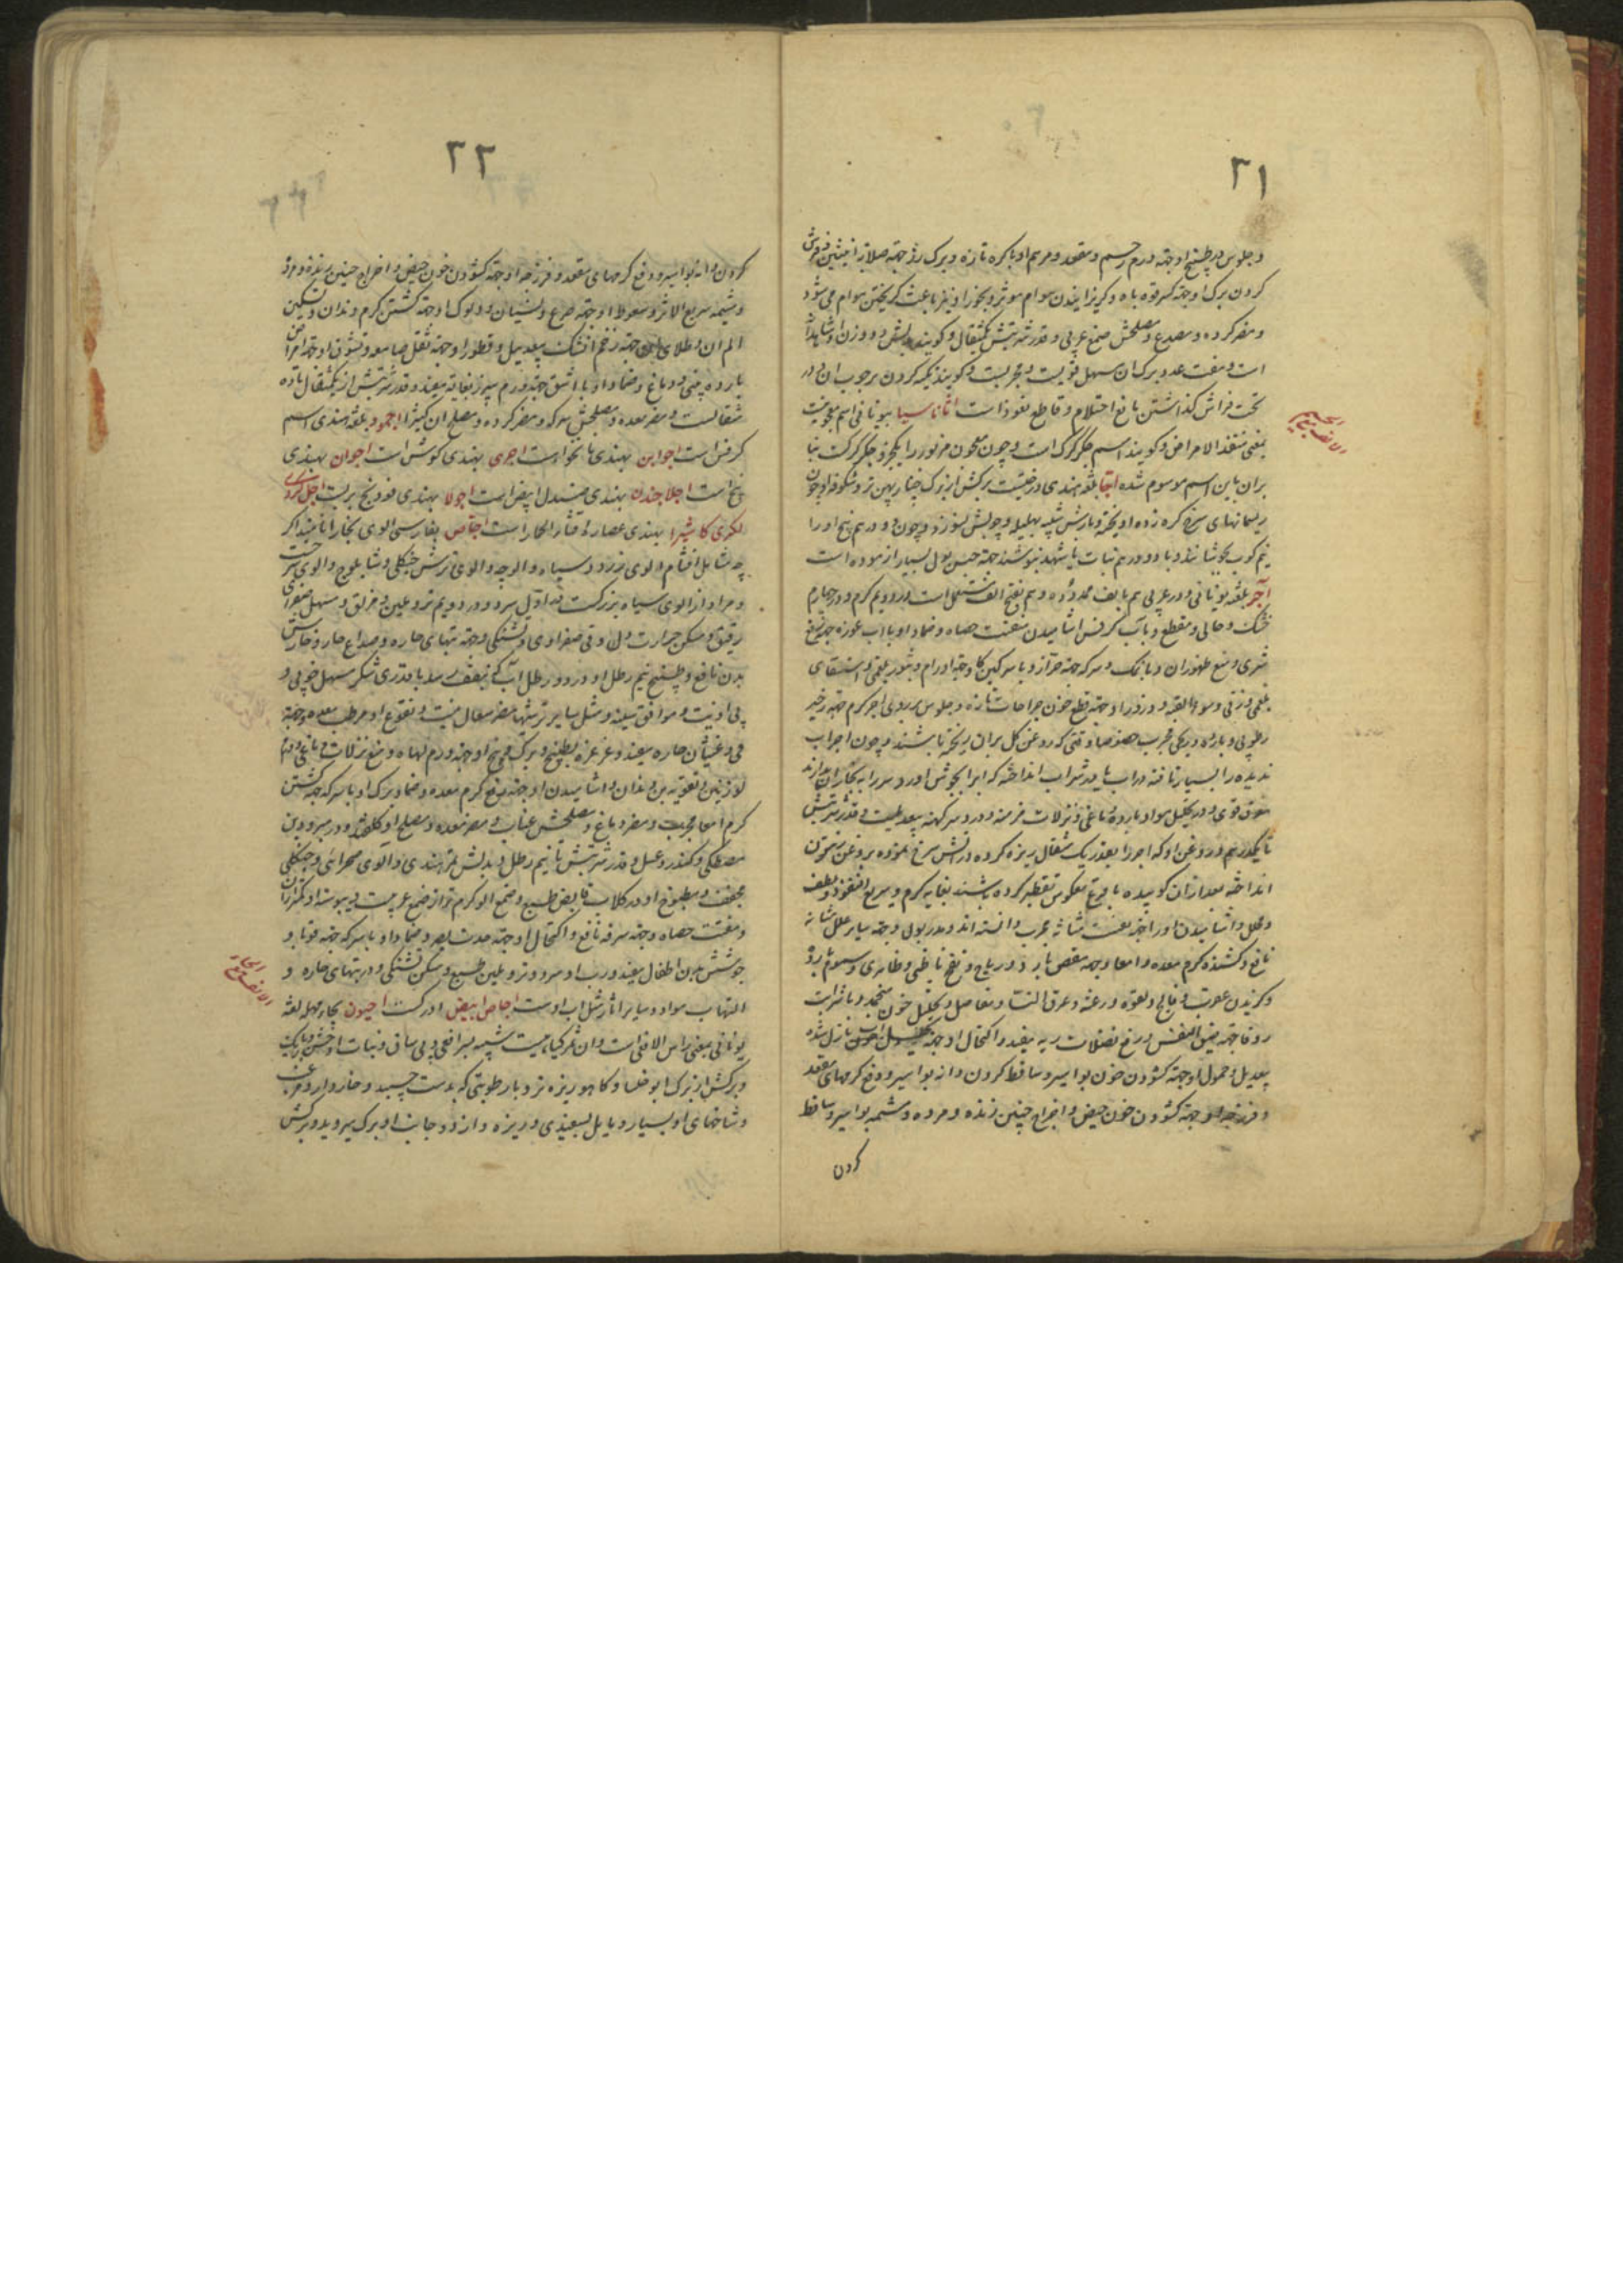 ۳۱
و جلوس در طبیخ او جهة ورم رحم و مقعد و مرهم او با کره تازه و برک رز جهة صلابة انثیین و فرش
کردن برک او جهة کسر قوه باه و کریزانیدن هوام موثر و بخور او نیز باعث کریختن هوام می شود
و مضر کرده و مصدع و مصلحش صمغ عربی و قدر شربتش یکمثقال و کویند بدلش دو وزن او شاهدانه
است و هفت عدد برک ان مسهل قویست و مجربست و کویند تکیه کردن برچوب ان و در
تحت فراش کذاشتن مانع احتلام و قاطع نعوذ است اثاناسیا بیونانی اسم معجونیست
بمعنی منقذ الامراض و کویند اسم جکر کرک است و چون معجون مزبور را یکجزو جکر کرکست بنا
بران باین اسم موسوم شده اجا بلغة هندی درختیست برکش از برک چنار پهن تر و شکوفه او چون
ریسمانهای سرخ کره زده اویخته و بارش شبیه بهلیله و چوبش بسوزد و چون دو درهم بیخ او را
نیم کوب بجوشانند و با دو درهم نبات یا شهد بنوشند جهة حبس بول بسیار ازموده است
آجر بلغة یونانی و در عربی هم بالف ممدوده و هم بفتح الف مستعمل است در دویم کرم و در چهارم
خشک و جالی و مقطع و باآب کرفس اشامیدن مفتت حصاه و ضماد او با اب غوره جهة
شری و منع ظهور ان و با نمک و سرکه جهة حزاز و با سرکین کاو جهة اورام و بثور بلغمی و استسقای
بلغمی و زقی و سوء القنیه و ذرور او جهة قطع خون جراحات تازه و جلوس بر روی اجر کرم جهة زحیر
رطوبی و بارده و ریحی مجرب خصوصا وقتی که روغن کل بران ریخته باشند و چون اجر آب
ندیده را بسیار تافته در اب یا در شراب انداخته که انرا بجوش اورد و سر را به بخار ان بدارند
معرق قوی و در تحلیل مواد بارده دماغی و نزلات مزمنه و درد سر کهنه بیعدیلست و قدر شربتش
تا یکدرهم و روغن او که اجر را بقدر یک مثقال ریزه کرده در اتش سرخ نموده بروغن زیتون
انداخته بعد ازان کوبیده با قرع معکوس تقطیر کرده باشند بغایه کرم و سریع النفوذ و ملطف
و محلل و اشامیدن او را جهة تفتیت مثانه مجرب دانسته اند و مدر بول و جهة سایر علل مثانه
نافع و کشنده کرم معده و امعا و جهة مغص بارد و ریاح و نفخ باطنی و ظاهری و سموم بارده
و کزیدن عقرب و فالج و لقوه و رعشه و عرق النسا و مفاصل و تحلیل خون منجمد و با شراب
زوفا جهة ضیق النفس و رفع فضلات ریه مفید و اکتحال او جهة نازل شده
بیعدیل و حمول او جهة کشودن خون بواسیر و ساقط کردن دانه بواسیر و دفع کرمهای مقعد
و فرزجه او جهة کشودن خون حیض و اخراج جنین زنده و مرده و مشیمه بواسیر و ساقط
کردن
۳۲
کردن دانه بواسیر و دفع کرمهای مقعد و فرزجه او جهة کشودن خون حیض و اخراج جنین زنده و مرده
و مشیمه سریع الاثر و سعوط او جهة صرع و نسیان و دلوک او جهة کشتن کرم دندان و تسکین
الم ان و طلای جهة زخم انکشت بیعدیل و قطور او جهة ثقل سامعه و نشوق او جهة امراض
بارده بینی و دماغ و ضماد او با اشق جهة ورم سپرز بغایة مفید و قدر شربتش از یکمثقال تا ده
مثقالست و مضر معده و مصلحش سرکه و مضر کرده و مصلح ان کتیرا اجمود بلغة هندی اسم
کرفس است اجواین بهندی نانخواه است اجری بهندی کوشن است اجوان بهندی
بنج است اجلا چندن بهندی صندل ابیض است اجولا بهندی فودنج بریست
لکری کا شیرا بهندی عصاره قثاء الحمار است اجاص بفارسی الوی بخارا نامند اکر
چه شامل اقسام الوی زرد و سیاه و الوچه و الوی ترش جنکلی و شاهلوج و الوی سرخست
و مراد از الوی سیاه بزرکست در اول سرد و در دویم تر و ملین و مزلق و مسهل صفرای
رقیق و مسکن حرارت دل و قی صفراوی و تشنکی و جهة تبهای حاره و صداع حار و خارش
بدن نافع و طبیخ نیم رطل او در دو رطل آب که بنصف رسد با قدری شکر مسهل خوبی و
بی اذیت و موافق سینه و مثل سایر ترشیها مضر سعال نیست و نقوع او مرطب معده و جهة
قی و غثیان حاره مفید و غرغره بطبیخ و برک و بیخ او جهة ورم لهاة و منع نزلات دماغی و ورم
لوزتین و تقویه بن دندان و اشامیدن او جهة دفع کرم معده و ضماد برک او با سرکه جهة کشتن
کرم امعا مجرب و مضر دماغ و مصلحش عناب و مضر معده و مصلح او کلقند و در مبرودین
مصطکی و کندر و عسل و قدر شربتش تا نیم رطل و بدلش تمر هندی و الوی صحرائی و جنکلی
مجفف و مطبوخ او در کلاب قابض طبع و صمغ الو کرم تر از صمغ عربیست و یبوسة او کمتر ازان
و مفتت حصاه و جهة سرفه نافع و اکتحال او جهة حدت بصر و ضماد او با سرکه جهة قوبا و
جوشش بدن اطفال مفید و رب او سرد و تر و ملین طبع و مسکن تشنکی و در تبهای حاره و
التهاب مواد و سایر اثار مثل اب اوست اجاص ابیض ادرکست اخیون بخاء مهمله لغة
یونانی بمعنی راس الافعی است و ان ثمر کیاهیست شبیه بسر افعی و بی ساق و نبات او خشن و باریک
و برکش از برک ابوخلسا و کاهو ریزه تر و با رطوبتی که بدست چسبد و خاردار و مزغب
و شاخهای او بسیار و مایل بسفیدی و ریزه و از دو جانب او برک میروید و برکش